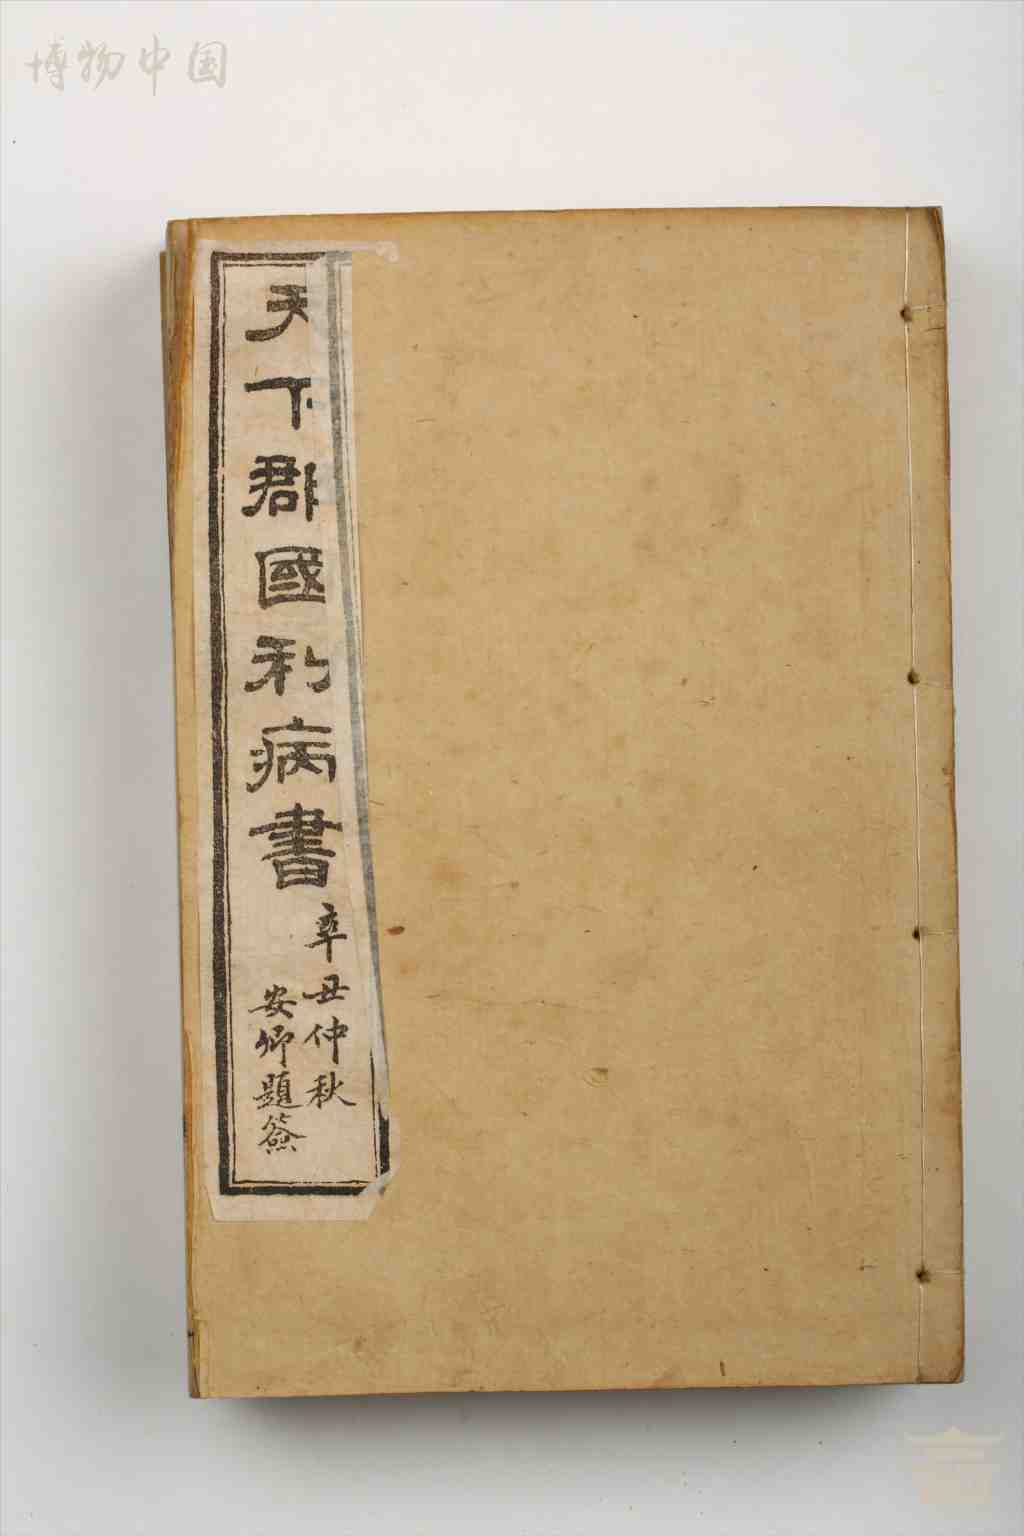 博物中国
天下郡國利病書
辛丑仲秋
安卿題簽